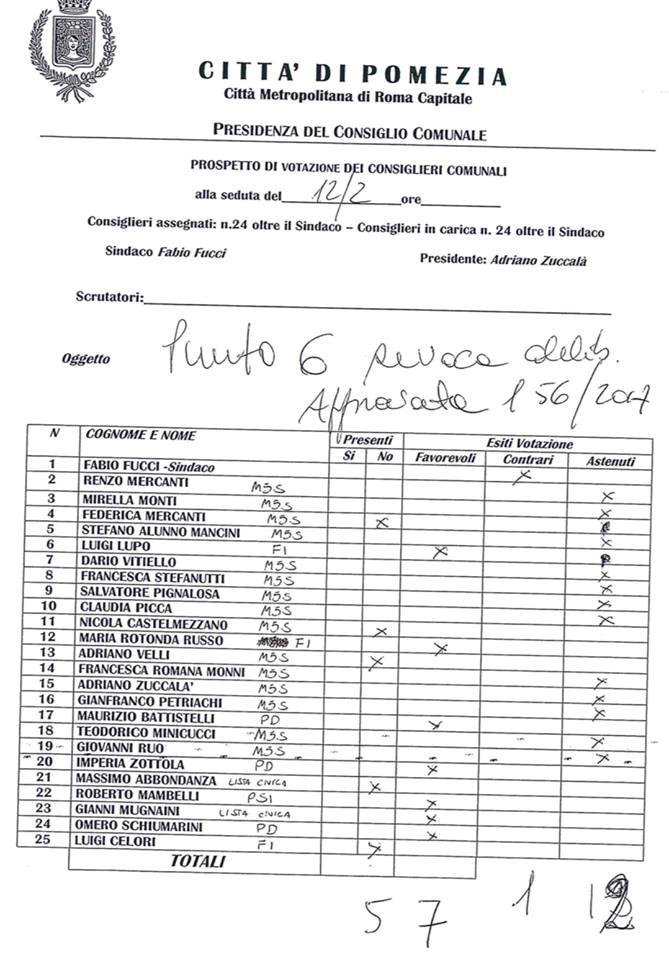 CITTA' DI POMEZIA
Città Metropolitana di Roma Capitale
PRESIDENZA DEL CONSIGLIO COMUNALE
PROSPETTO DI VOTAZIONE DEI CONSIGLIERI COMUNALI
alla seduta del 12/2 ore
Consiglieri assegnati: n.24 oltre il Sindaco – Consiglieri in carica n. 24 oltre il Sindaco
Sindaco Fabio Fucci Presidente: Adriano Zuccalà
Scrutatori:
Oggetto Punto 6 revoca delib.
Approvata 156/2017
N COGNOME E NOME Presenti Esiti Votazione
Si No Favorevoli Contrari Astenuti
1 FABIO FUCCI -Sindaco X
2 RENZO MERCANTI M5S
3 MIRELLA MONTI M5S X
4 FEDERICA MERCANTI M5S X X
5 STEFANO ALUNNO MANCINI M5S
6 LUIGI LUPO FI X X
7 DARIO VITIELLO M5S
8 FRANCESCA STEFANUTTI M5S X
9 SALVATORE PIGNALOSA M5S X
10 CLAUDIA PICCA M5S X
11 NICOLA CASTELMEZZANO M5S X X
12 MARIA ROTONDA RUSSO FI
13 ADRIANO VELLI M5S X X
14 FRANCESCA ROMANA MONNI M5S
15 ADRIANO ZUCCALA' M5S X
16 GIANFRANCO PETRIACHI M5S X
17 MAURIZIO BATTISTELLI PD X
18 TEODORICO MINICUCCI M5S X
19 GIOVANNI RUO M5S X
20 IMPERIA ZOTTOLA PD X
21 MASSIMO ABBONDANZA LISTA CIVICA X
22 ROBERTO MAMBELLI PSI X
23 GIANNI MUGNAINI LISTA CIVICA X
24 OMERO SCHIUMARINI PD X
25 LUIGI CELORI FI X
TOTALI
5 7 1 12